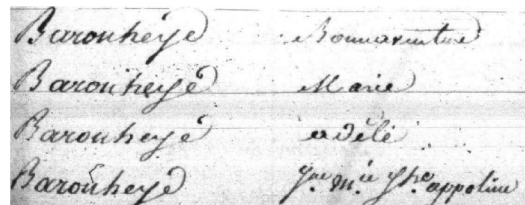 Barouheyé Bonnaventure
Barouheyé Marie
Barouheyé adélé
Barouheyé appoline